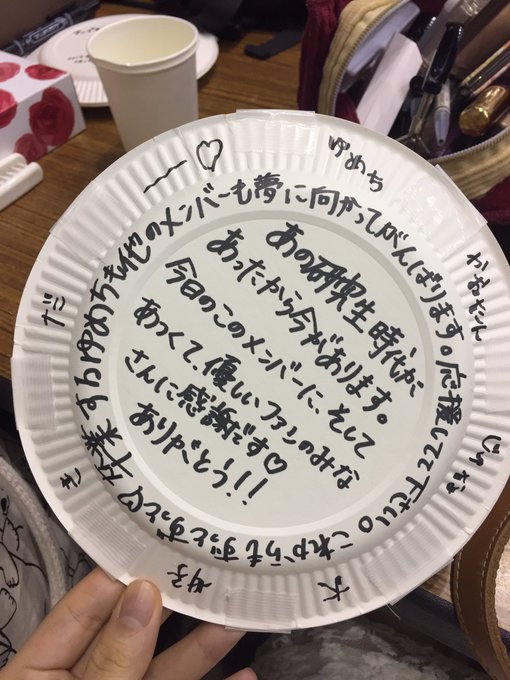 あの研究生時代が
あったから今があります。
今日のこのメンバーに、そして
あつくて、優しいファンのみな
さんに感謝です♡
ありがとう!!
卒業するゆめちも他のメンバーも夢に向かってがんばります。応援して下さい。これからもずっとずっと♡
ゆめち かおたん じゅな 大好きだー♡